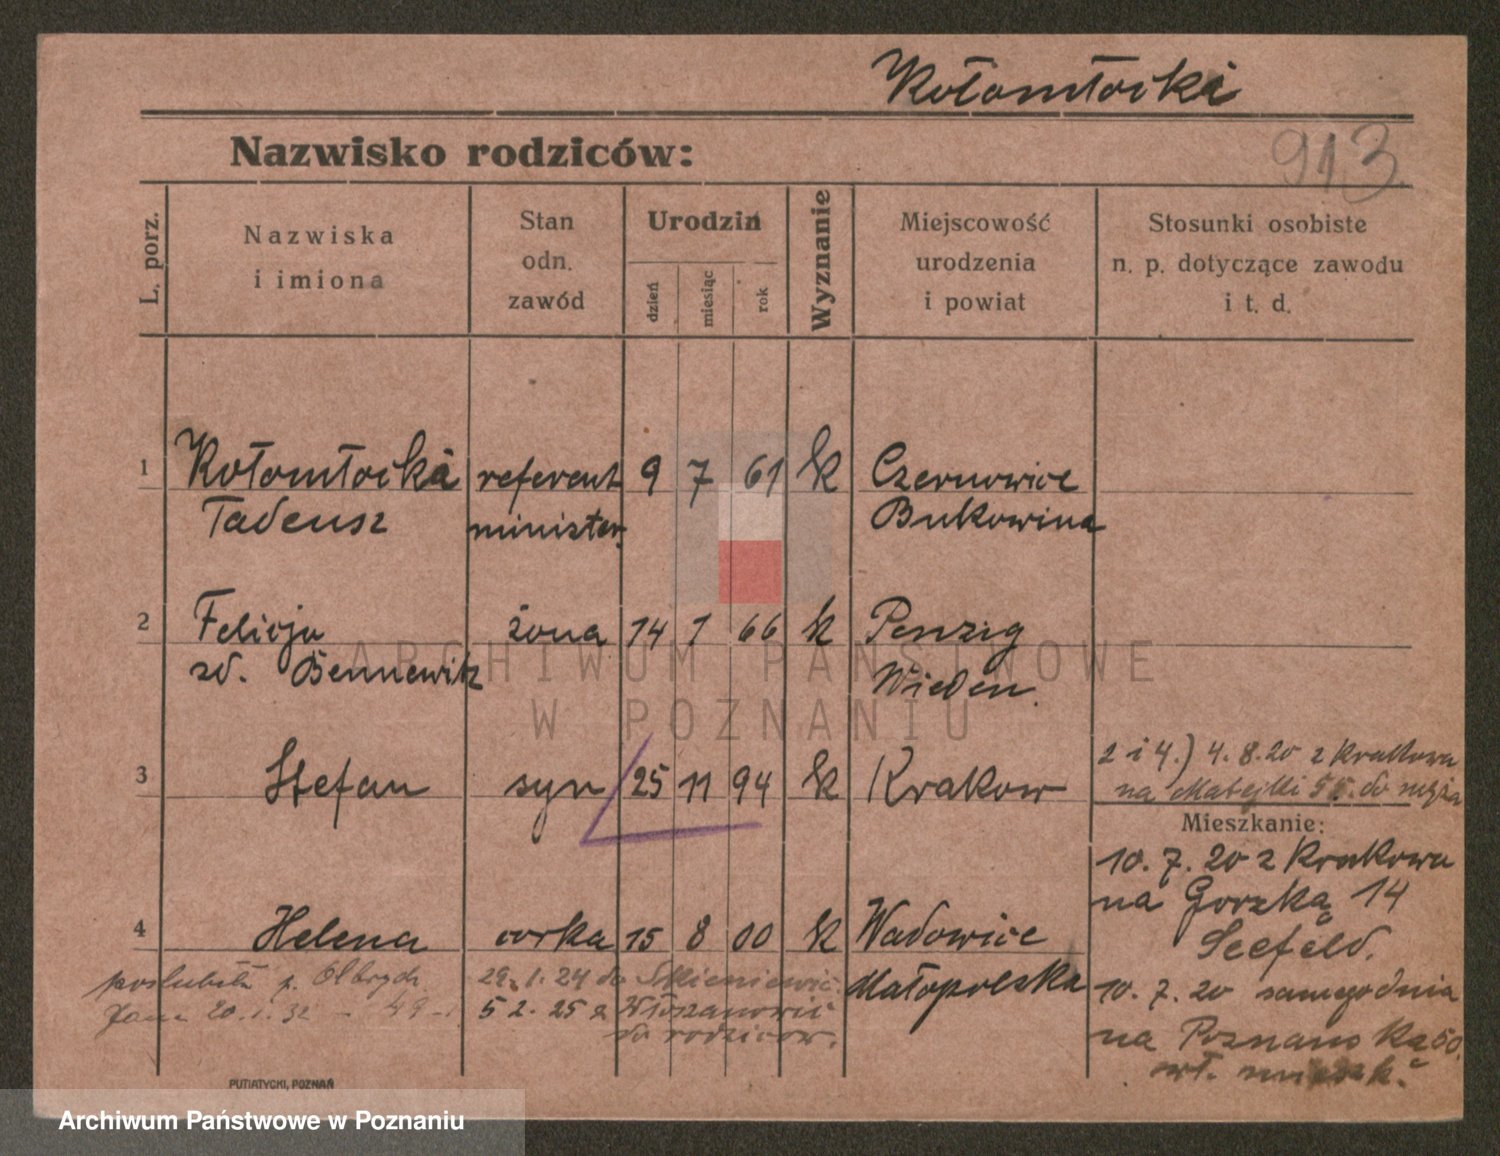 Kołomłocki
Nazwisko rodziców:
913
L. porz.
Nazwiska
i imiona
Stan
odn.
zawód
Urodzin
dzień
miesiąc
rok
Wyznanie
Miejscowość
urodzenia
i powiat
Stosunki osobiste
n. p. dotyczące zawodu
i t. d.
1 Kołomłocki referent 9 7 61 k Czernowice
Tadeusz minister. Bukowina
2 Felicja żona 14 1 66 k Penzig
zd. Bennewitz Wieden.
3 Stefan syn 25 11 94 k Krakow
2 i 4.) 4.8.20 z Krakowa
na Matejki 55. do męża
Mieszkanie:
10. 7. 20 z Krakowa
na Gorzką 14
Seefeld.
4 Helena corka 15 8 00 k Wadowice
Małopolska
poslubiła p. Olbrych
20.1.32 - 49 -
29.1.24 do
5 2. 25 z
do rodzicow.
10. 7. 20 samego dnia
na Poznanską 50.
wł. mieszk.
PUTIATYCKI, POZNAŃ
ARCHIWUM PAŃSTWOWE
W POZNANIU
Archiwum Państwowe w Poznaniu